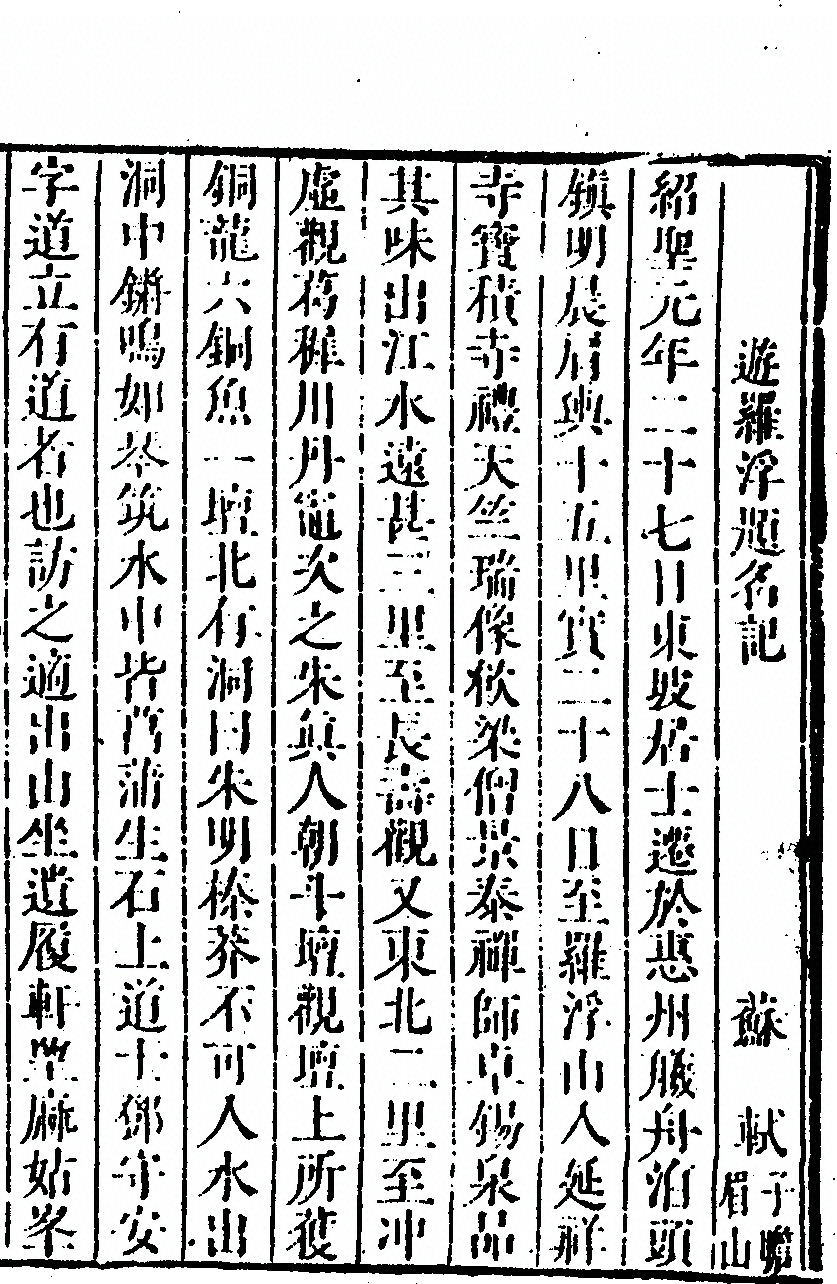 遊羅浮題名記 蘇軾子瞻眉山
紹聖元年二十七日東坡居士遷於惠州艤舟泊頭
鎮明晨肩輿十五里實二十八日至羅浮山入延祥
寺寶積寺禮天竺瑞像飲梁僧景泰禪師卓錫泉品
其味出江水遠甚三里至長壽觀又東北二里至冲
虛觀葛稚川丹竈次之朱眞人朝斗壇觀壇上所獲
銅龍六銅魚一壇北有洞曰朱明榛莽不可入水出
洞中鏘鳴如琴筑水中皆菖蒲生石上道士鄧守安
字道立有道者也訪之適出山坐遺履軒望麻姑峯